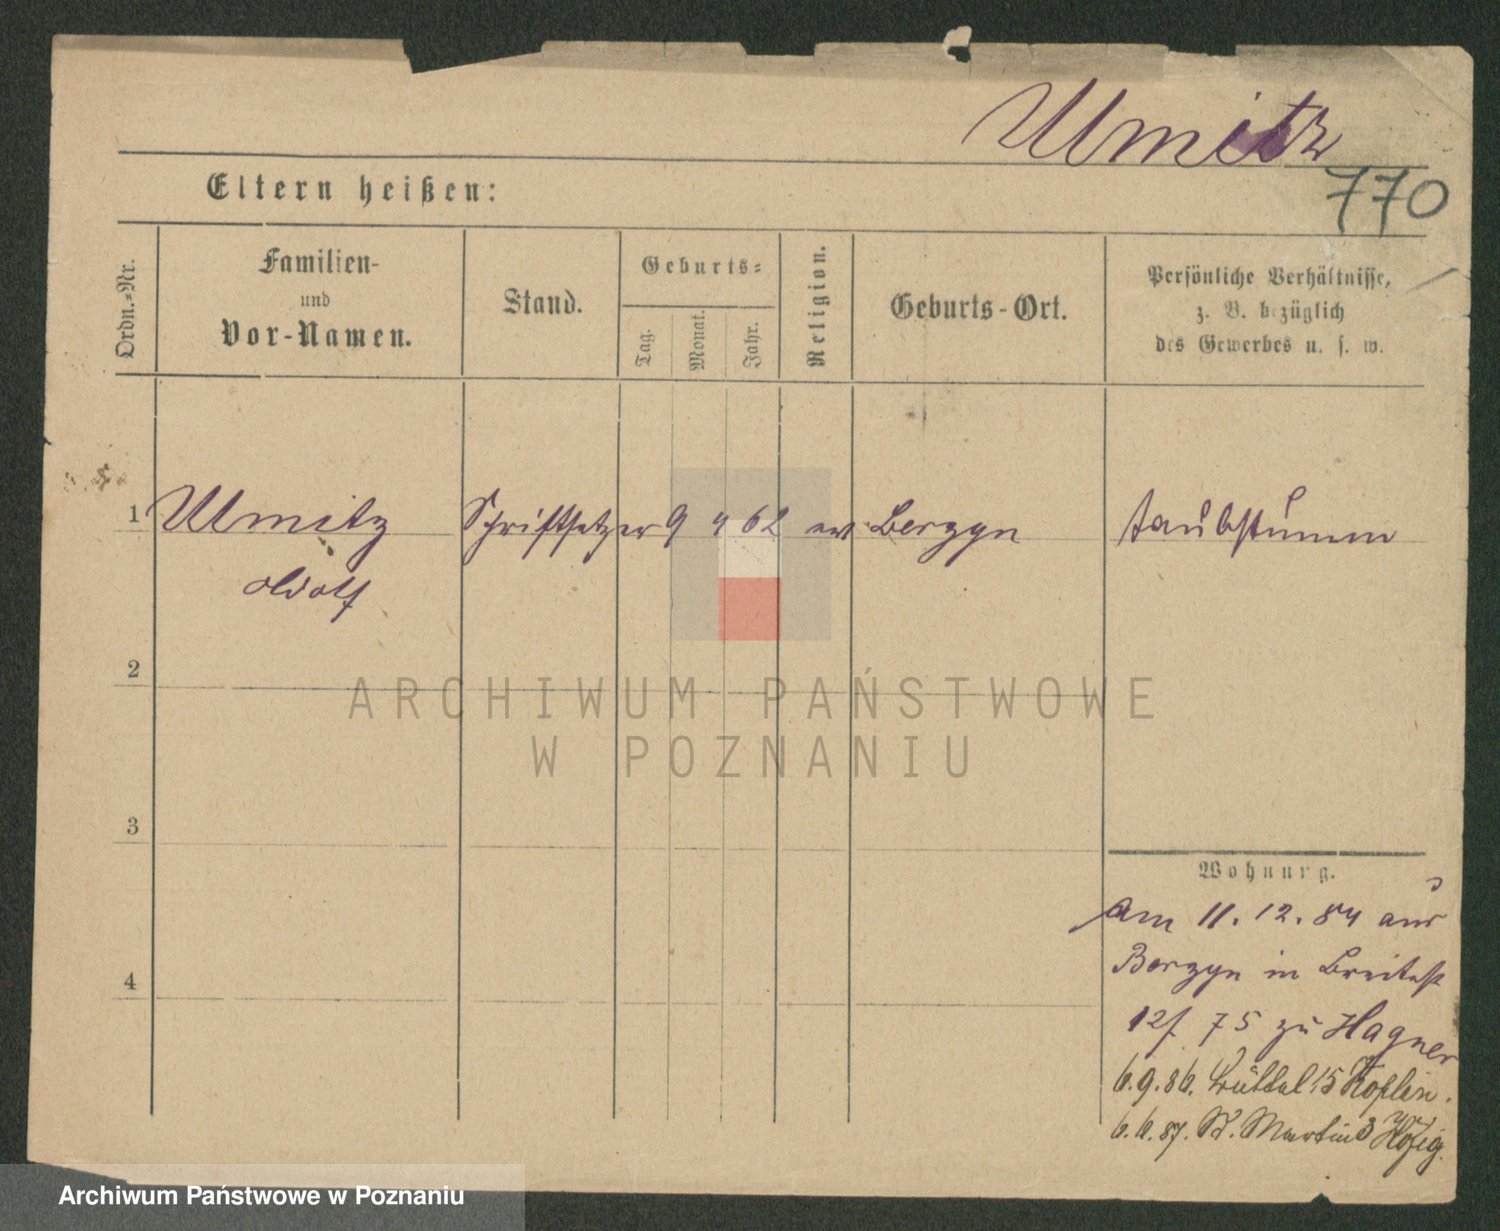 Ulmitz
770
Eltern heißen:
Ordn.=Nr.
Familien-
und
Vor-Namen.
Stand.
Geburts=
Tag.
Monat.
Jahr.
Religion.
Geburts-Ort.
Persönliche Verhältnisse,
z. B. bezüglich
des Gewerbes u. s. w.
1 Ulmitz Schriftsetzer 9 4 62 ev Berzyn taubstumm
Adolf
2
ARCHIWUM PAŃSTWOWE
W POZNANIU
3
Wohnung.
Am 11. 12. 84 aus
Berzyn in Breitestr
12 75 zu Hagner
4
6.9.86. Büttel 15
6.6.87. St. Martin 3
Archiwum Państwowe w Poznaniu